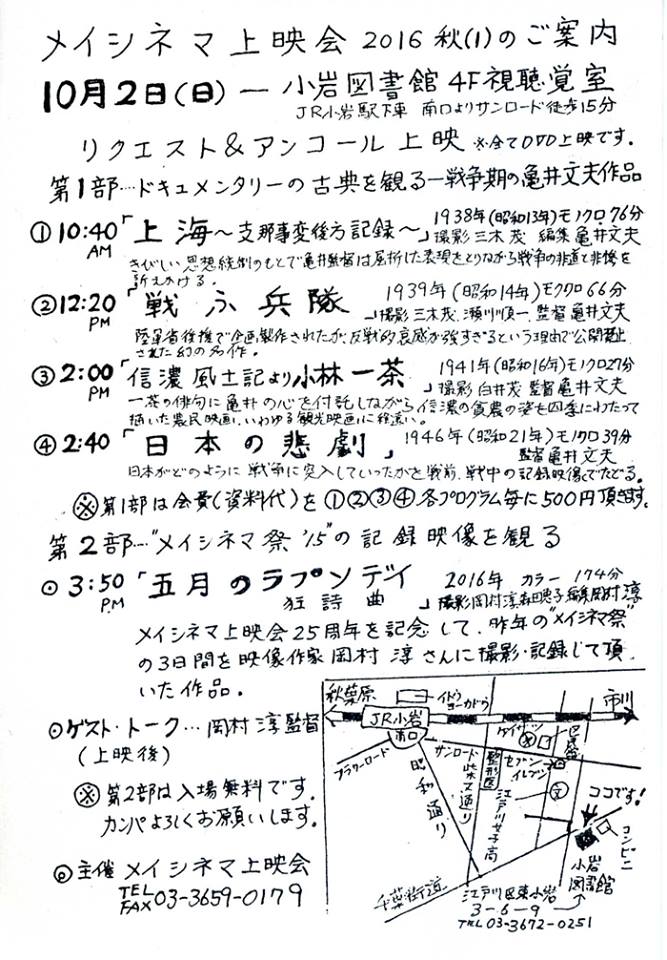 メイシネマ上映会 2016 秋(1)のご案内
10月2日(日)ー 小岩図書館 4F視聴覚室
JR小岩駅下車 南口よりサンロード徒歩15分
リクエスト&アンコール上映 ※全てDVD上映です。
第1部…ドキュメンタリーの古典を観るー戦争期の亀井文夫作品
①10:40 AM 「上海〜支那事変後方記録〜」 1938年(昭和13年)モノクロ76分
撮影 三木茂 編集 亀井文夫
きびしい思想統制のもとで亀井監督は屈折した表現をとりながら戦争の非道と悲惨を
訴えかける。
②12:20 PM 「戦ふ兵隊」 1939年(昭和14年)モノクロ66分
撮影 三木茂、瀬川順一、監督 亀井文夫
陸軍省後援で企画製作されたが、反戦的哀感が強すぎるという理由で公開禁止
された幻の名作。
③2:00 PM 「信濃風土記より小林一茶」 1941年(昭和16年)モノクロ27分
撮影 白井茂 監督 亀井文夫
一茶の俳句に亀井の心を付託しながら信濃の貧農の姿を四季にわたって
描いた農民映画。いわゆる観光映画に程遠い。
④2:40 「日本の悲劇」 1946年(昭和21年)モノクロ39分
監督 亀井文夫
日本がどのように戦争に突入していったかを戦前、戦中の記録映像でたどる。
※第1部は会費(資料代)を①②③④各プログラム毎に500円頂きます。
第2部…"メイシネマ祭'15"の記録映像を観る
⊙3:50 P.M 「五月のラプソディ 2016年 カラー 174分
狂詩曲 」撮影 岡村淳 編集 岡村淳
メイシネマ上映会25周年を記念して、昨年の"メイシネマ祭"
の3日間を映像作家岡村淳さんに撮影・記録して頂
いた作品。
⊙ゲスト・トーク…岡村淳監督
(上映後)
※第2部は入場無料です。
カンパよろしくお願いします。
◎主催 メイシネマ上映会
TEL FAX 03-3659-0179
秋葉原
イトーヨーカドウ
市川
JR小岩
南口
フラワーロード
昭和通り
サンロード
整形図
江戸川女子高
セブンイレブン
ココです!
コンビニ
小岩図書館
千葉街道
江戸川区東小岩
3-6-9
TEL 03-3672-0251